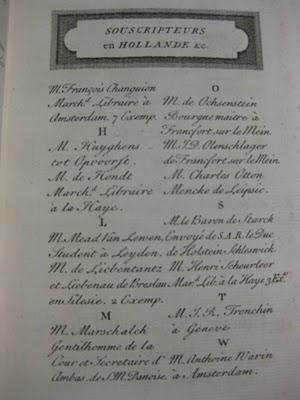 SOUSCRIPTEURS
en HOLLANDE &c.
M. François Changuion
March.d Libraire à
Amsterdam. 7 Exemp.
H
M. Huyghens
tot Opvoorst.
M. de Hondt
March.d Libraire
à la Haye.
L
M. Mead Van Lewen,
Student à Leyden.
M. de Liebentantz
et Liebenau de Breslau
en Silesie. 2 Exemp.
M
M. Marschalch
Gentilhomme de la
Cour et Secretaire d'
Ambas. de S.M. Danoise.
O
M. de Ochsenstein
Bourgmaitre à
Francfort sur le Mein.
M. J.D. Olenschlager
de Francfort sur le Mein.
M. Charles Otton
Mencke de Leipsic.
S
M. le Baron de Starck
Envoyé de S.A.R. le Duc
de Holstein Schleswick.
M. Henri Scheurleer
Mar. Lib. à la Haye 3 Ex.
T
M. J.R. Tronchin
à Genevé
W
M. Anthoine Warin
à Amsterdam.